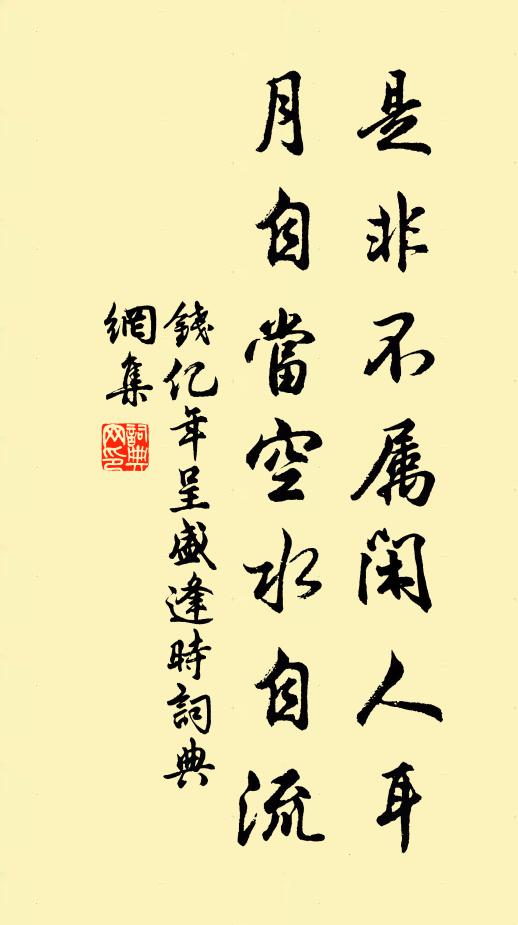 是非不属闲人耳
月自當空水自流
錢亿年呈盛逢時詞典
網集
詞典
网印